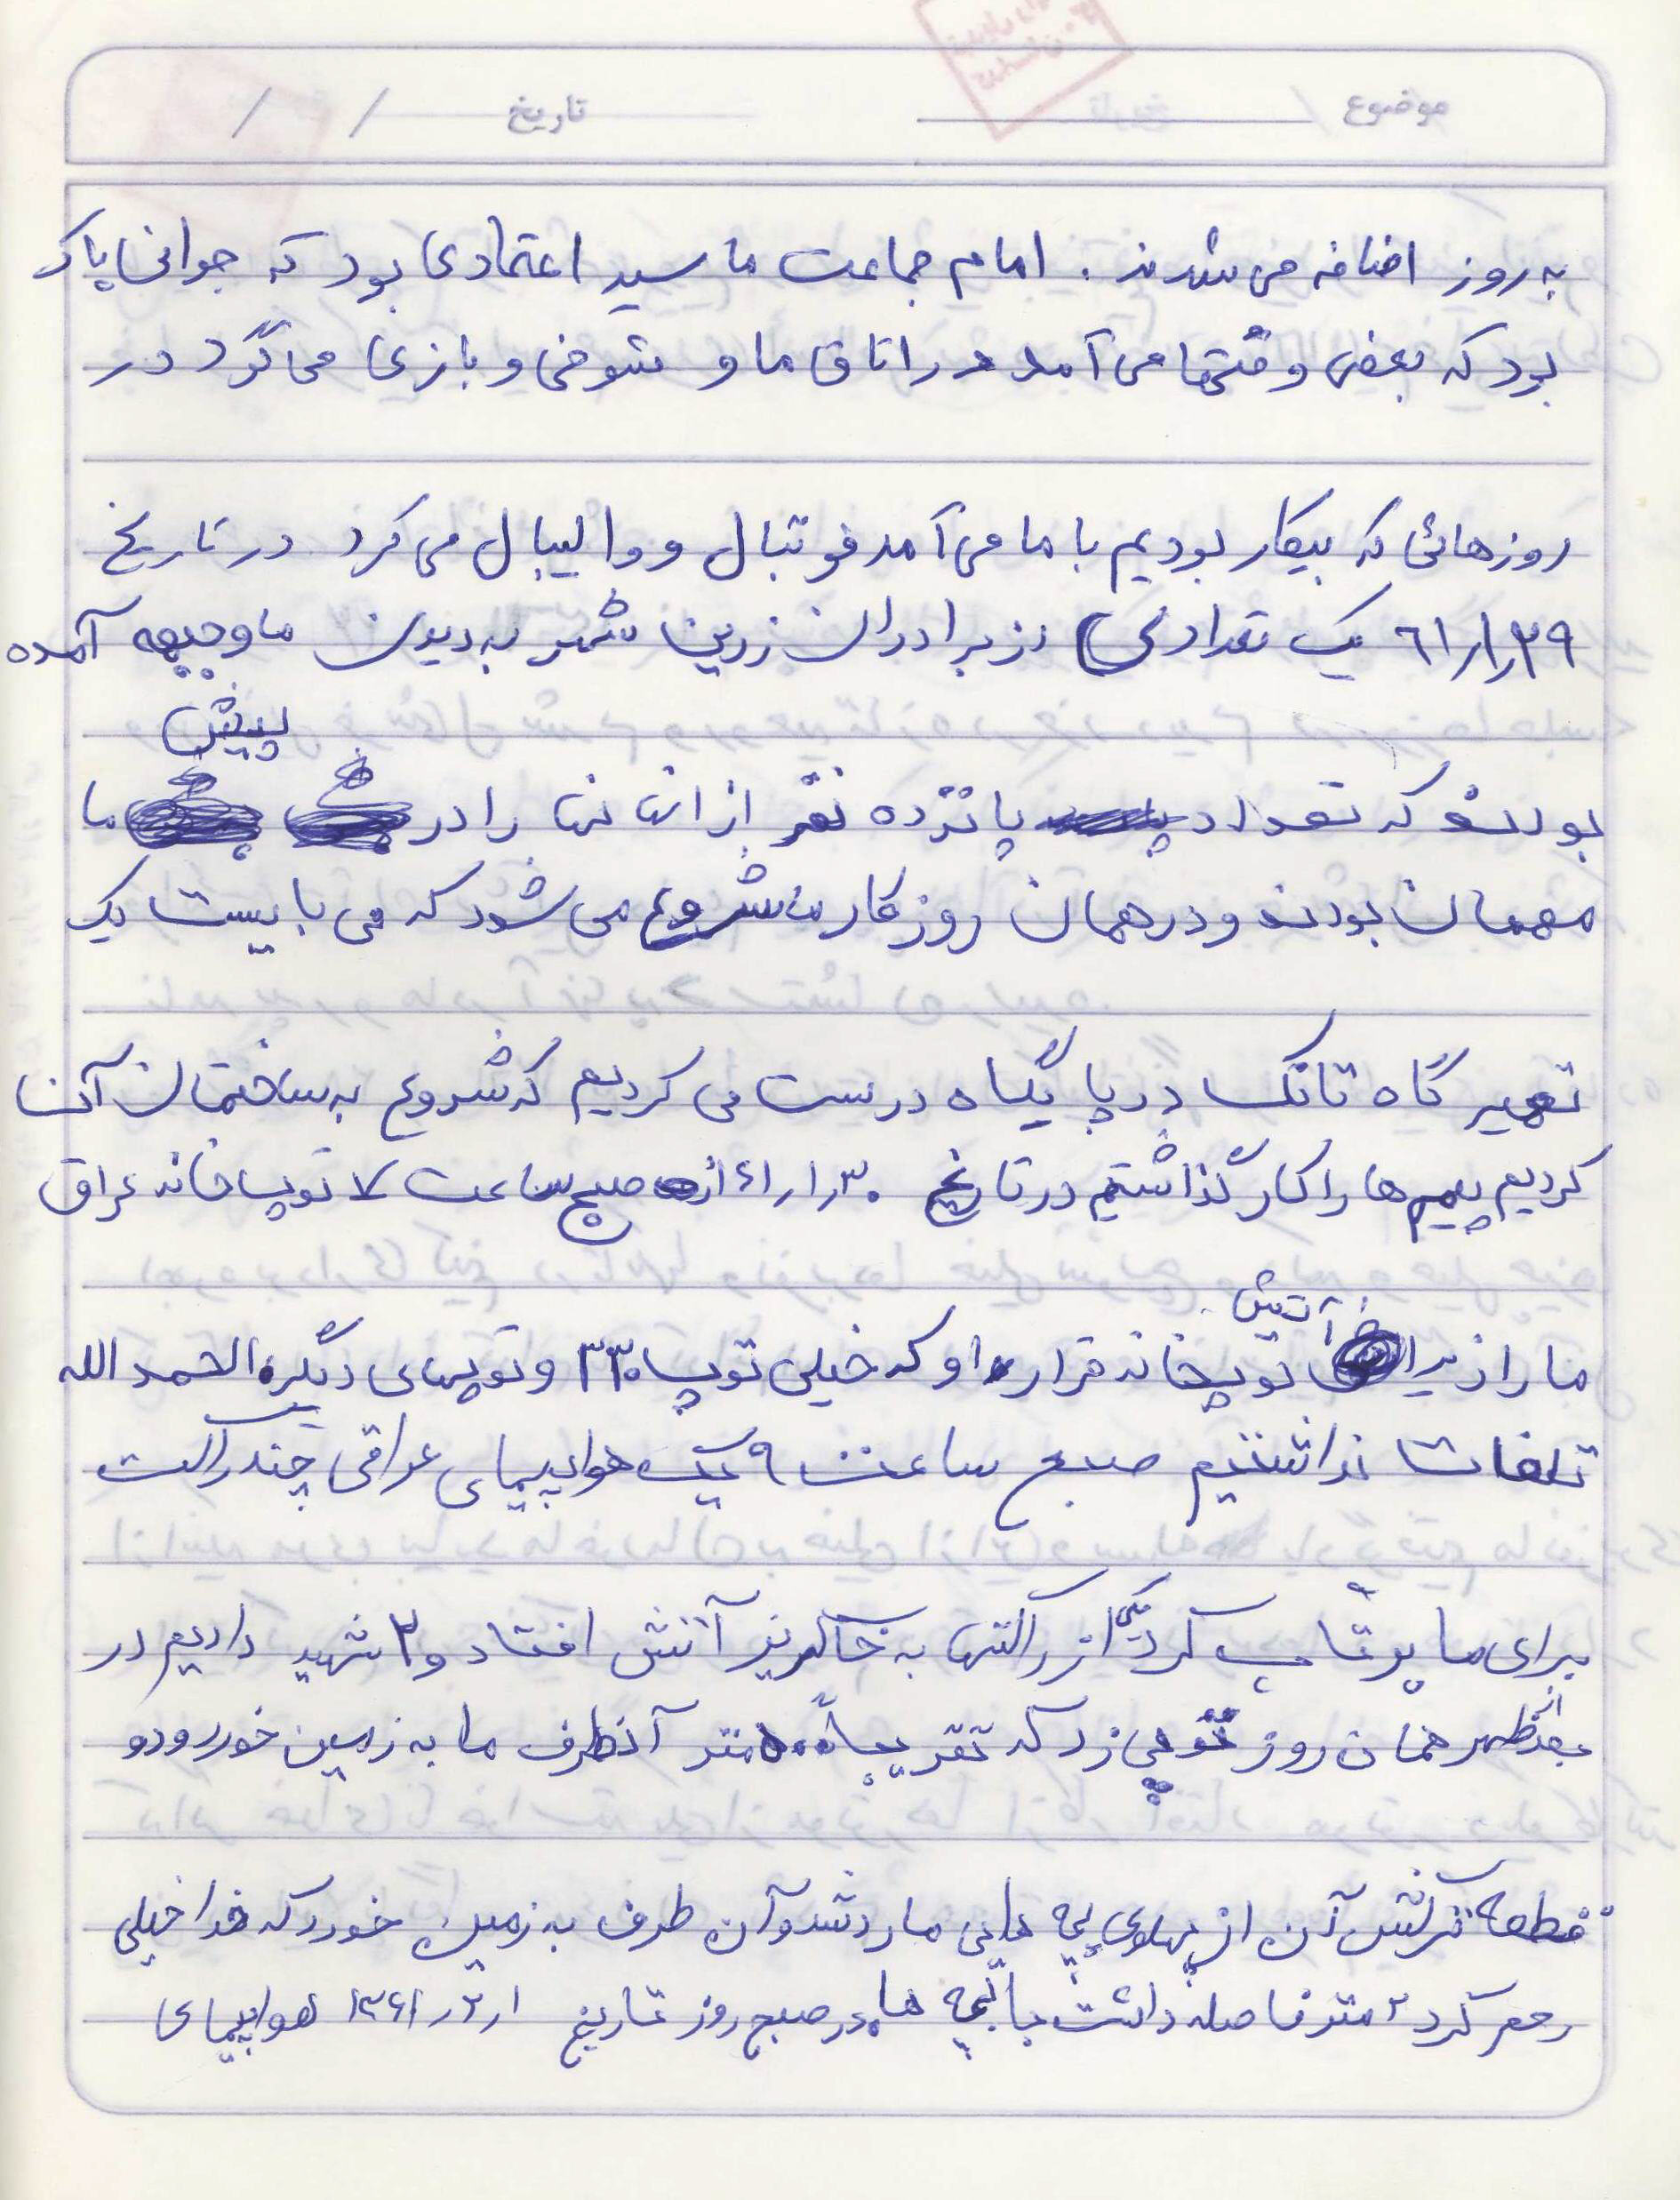 موضوع / تاریخ / /
به روز اضافه می شدند . امام جماعت ما سید اعتمادی بود که جوانی پاک
بود که بعضی وقتها می آمد در اتاق ما و شوخی و بازی می کرد در
روزهائی که بیکار بودیم با ما می آمد فوتبال و والیبال می کرد در تاریخ
۶۱/۱/۲۹ یک تعدادی از برادران زرین شهر به دیدن ما و جبهه آمده
پیش
بودند که تعداد پانزده نفر از آن ها را در ما
مهمان بودند و در همان روز کار ما شروع می شود که می بایست یک
تعمیر گاه تانک در پایگاه درست می کردیم که شروع به ساختمان آن
کردیم پیم ها را کار گذاشتیم در تاریخ ۶۱/۱/۳۰ از صبح ساعت ۷ توپ خانه عراق
آتش
ما را زیر توپخانه قرار داد که خیلی توپ ۱۳۰ و توپهای دیگر الحمد الله
تلفات نداشتیم صبح ساعت ۹ یک هواپیمای عراقی چند راکت
برای ما پرتاب کرد یکی از راکتها به خاکریز آتش افتاد و ۲ شهید دادیم در
بعد از ظهر همان روز توپی زد که تقریباً ۵۰۰ متر آنطرف ما به زمین خورد و دو
قطعه ترکش آن از پهلوی بچه هایی ما رد شد و آن طرف به زمین خورد که خدا خیلی
رحم کرد ۲ متر فاصله داشت با بچه ها در صبح روز تاریخ ۱۳۶۱/۲/۱ هواپیمای